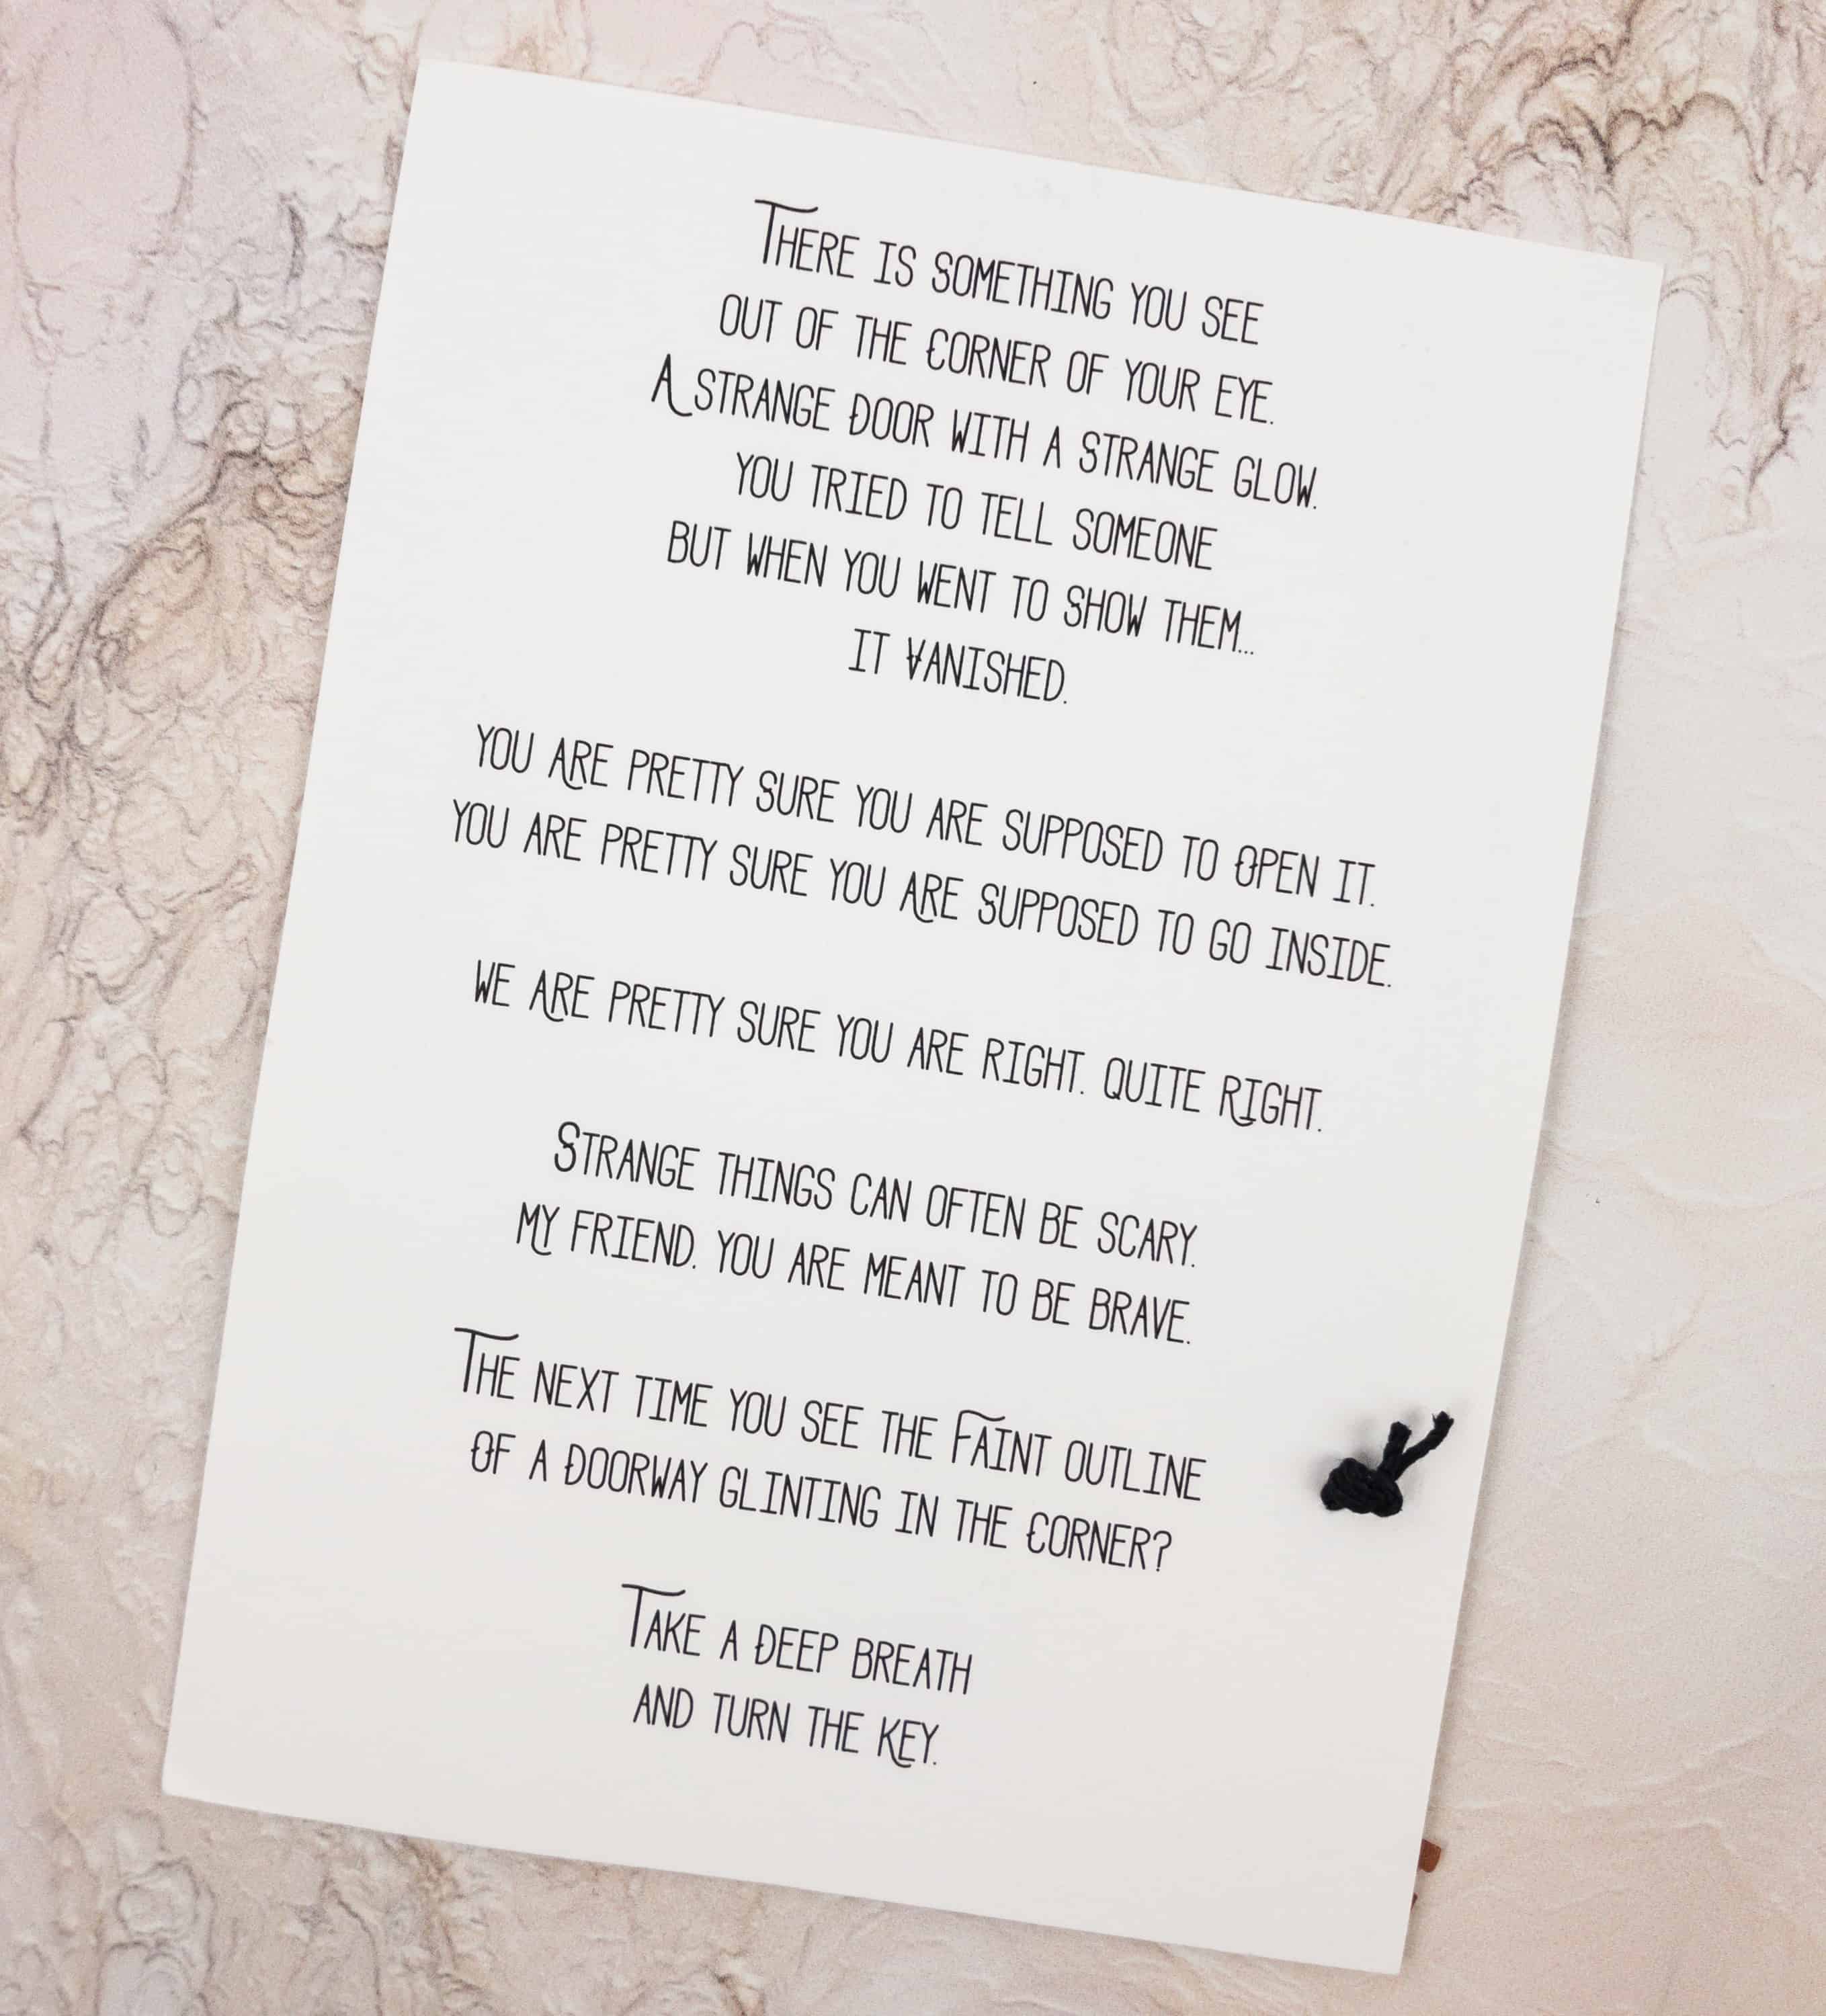 THERE IS SOMETHING YOU SEE
OUT OF THE CORNER OF YOUR EYE.
A STRANGE DOOR WITH A STRANGE GLOW.
YOU TRIED TO TELL SOMEONE
BUT WHEN YOU WENT TO SHOW THEM...
IT VANISHED.
YOU ARE PRETTY SURE YOU ARE SUPPOSED TO OPEN IT.
YOU ARE PRETTY SURE YOU ARE SUPPOSED TO GO INSIDE.
WE ARE PRETTY SURE YOU ARE RIGHT. QUITE RIGHT.
STRANGE THINGS CAN OFTEN BE SCARY.
MY FRIEND. YOU ARE MEANT TO BE BRAVE.
THE NEXT TIME YOU SEE THE FAINT OUTLINE
OF A DOORWAY GLINTING IN THE CORNER?
TAKE A DEEP BREATH
AND TURN THE KEY.